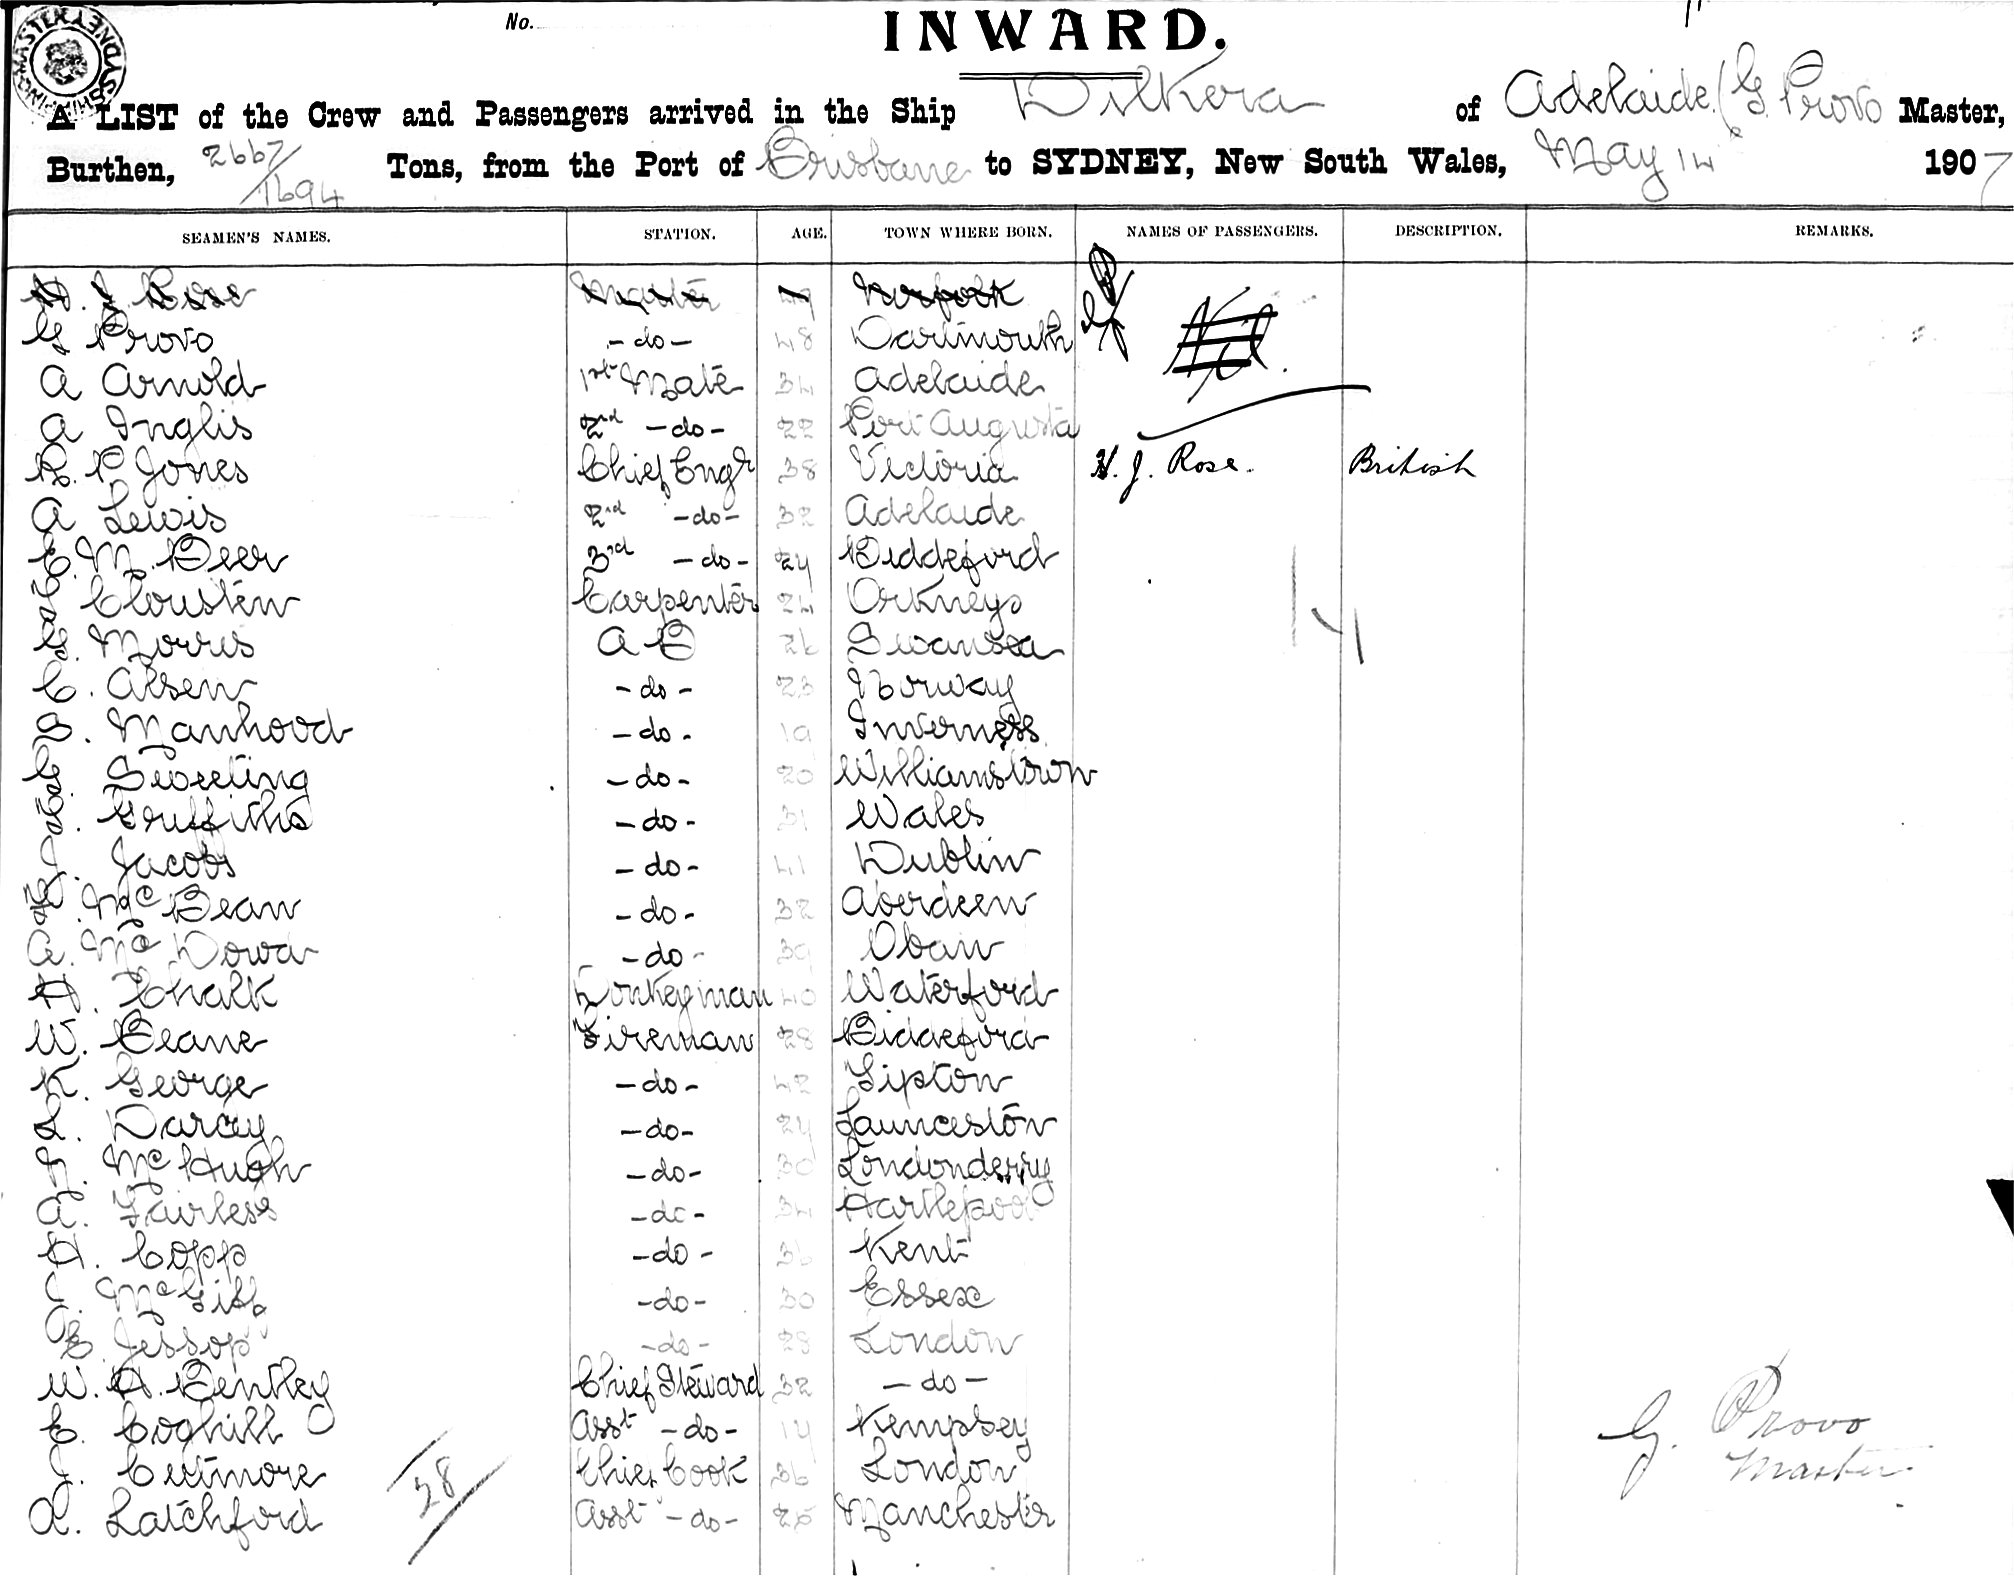 SHIPPING MASTER SYDNEY
No.
INWARD.
A LIST of the Crew and Passengers arrived in the Ship Dilkera of Adelaide, G. Provo Master,
Burthen, 2667/1694 Tons, from the Port of Brisbane to SYDNEY, New South Wales, May 14 1907
SEAMEN'S NAMES. STATION. AGE. TOWN WHERE BORN. NAMES OF PASSENGERS. DESCRIPTION. REMARKS.
H. J. Rose Master 49 Norfolk Nil.
G Provo -do- 48 Dartmouth
A Arnold 1st Mate 34 Adelaide
A Inglis 2nd -do- 22 Port Augusta
R. P Jones Chief Engr 38 Victoria H. J. Rose. British
A Lewis 2nd -do- 32 Adelaide
E. M. Beer 3rd -do- 24 Biddeford
Clousten Carpenter 24 Orkneys
G. Morris A B 26 Swansea
C. Alsen -do- 23 Norway
Manhood -do- 19 Inverness
C. Sweeting -do- 20 Williamstown
Griffiths -do- 31 Wales
J. Jacobs -do- 41 Dublin
McBean -do- 32 Aberdeen
A. McDowd -do- 39 Oban
H. Chalk Donkeyman 40 Waterford
W. Beane Fireman 28 Biddeford
K. George -do- 42 Lipton
L. Darcey -do- 24 Launceston
McHugh -do- 30 Londonderry
A. Fairless -do- 34 Hartlepool
H. Copp -do- 36 Kent
J. -do- 30 Essex
E. Jessop -do- 28 London
W. H. Bentley Chief Steward 32 -do-
E. Coghill Asst -do- 17 Kempsey
J. Cuttmore Chief Cook 36 London
A. Latchford Asst -do- 26 Manchester
28
G. Provo
Master